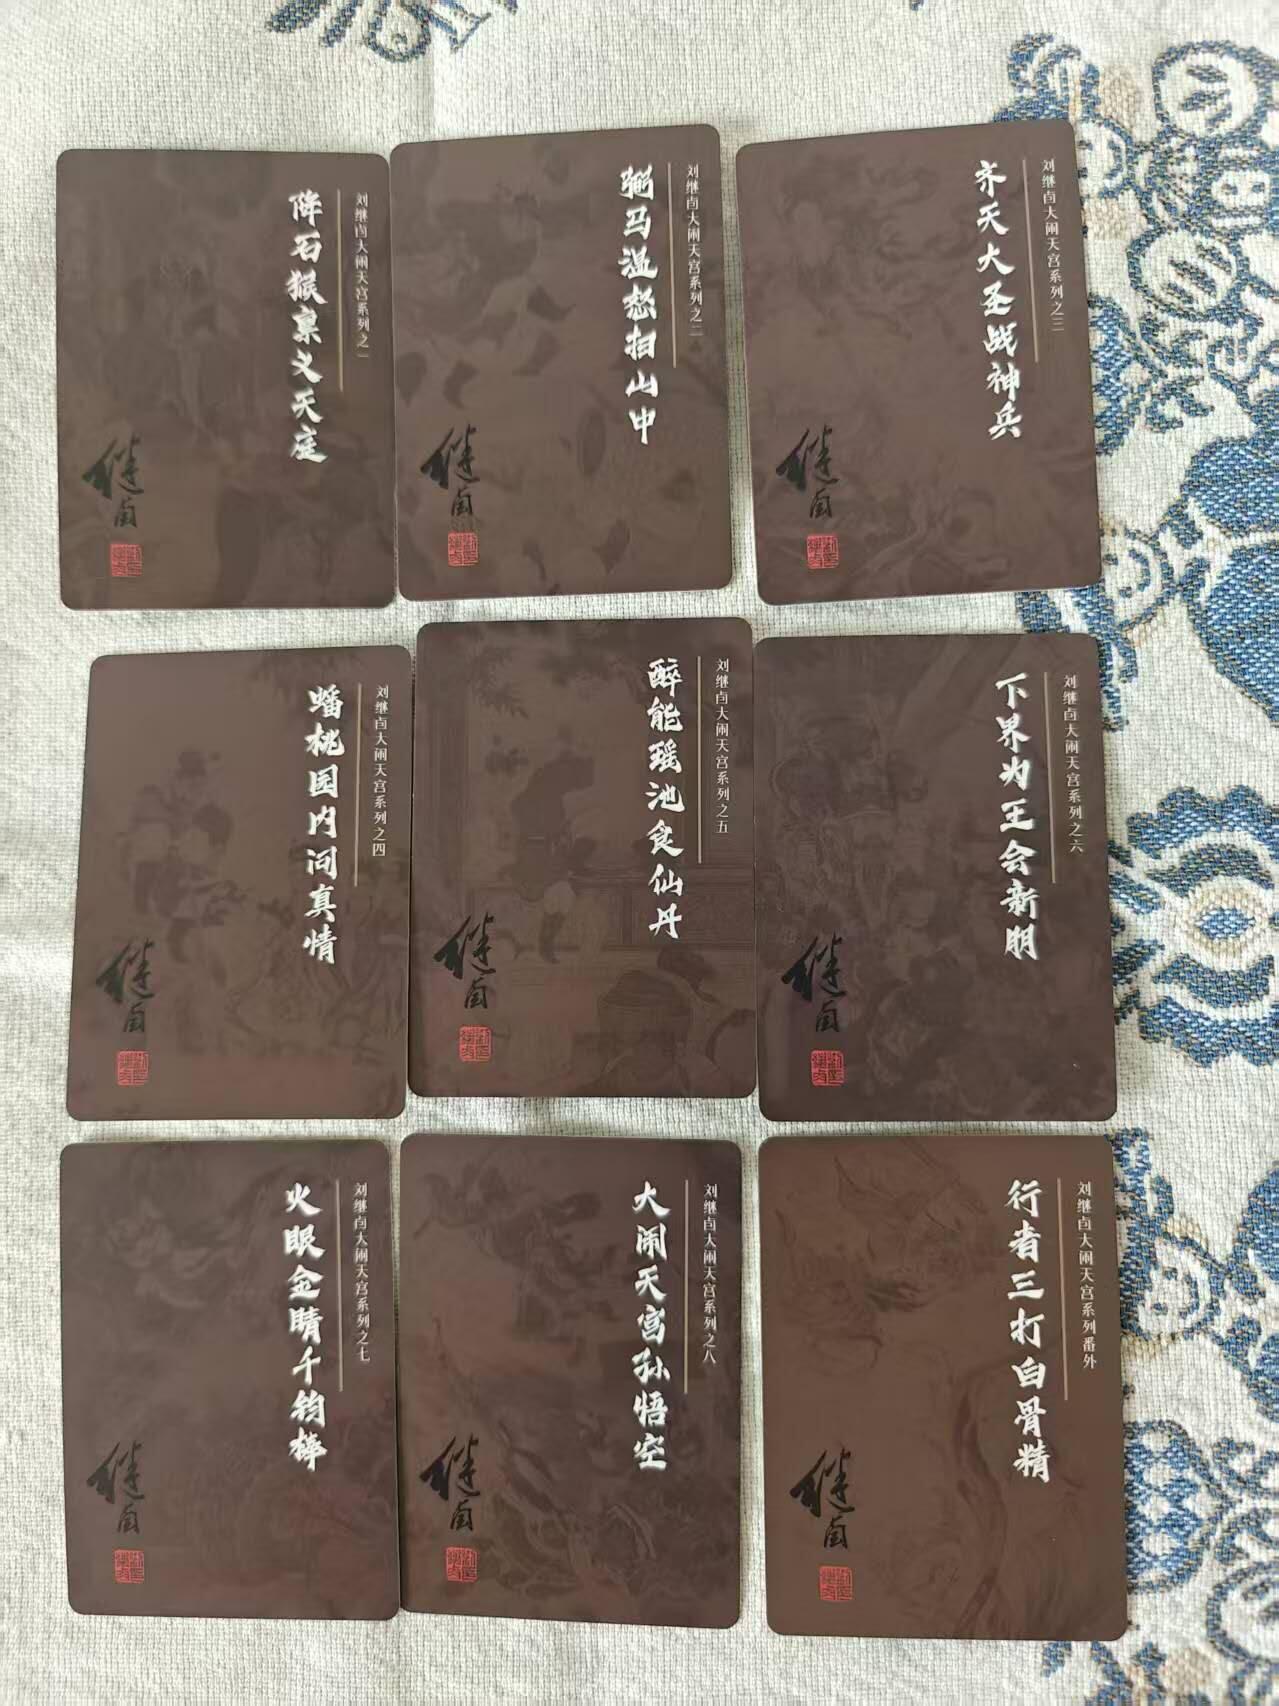 刘继卣大闹天宫系列之一
降石猴禀义天庭
继卣
刘继卣大闹天宫系列之二
弼马温怒扫山中
继卣
刘继卣大闹天宫系列之三
齐天大圣战神兵
继卣
刘继卣大闹天宫系列之四
蟠桃园内问真情
继卣
刘继卣大闹天宫系列之五
醉能瑶池食仙丹
继卣
刘继卣大闹天宫系列之六
下界为王会新朋
继卣
刘继卣大闹天宫系列之七
火眼金睛千钧棒
继卣
刘继卣大闹天宫系列之八
大闹天宫孙悟空
继卣
刘继卣大闹天宫系列番外
行者三打白骨精
继卣